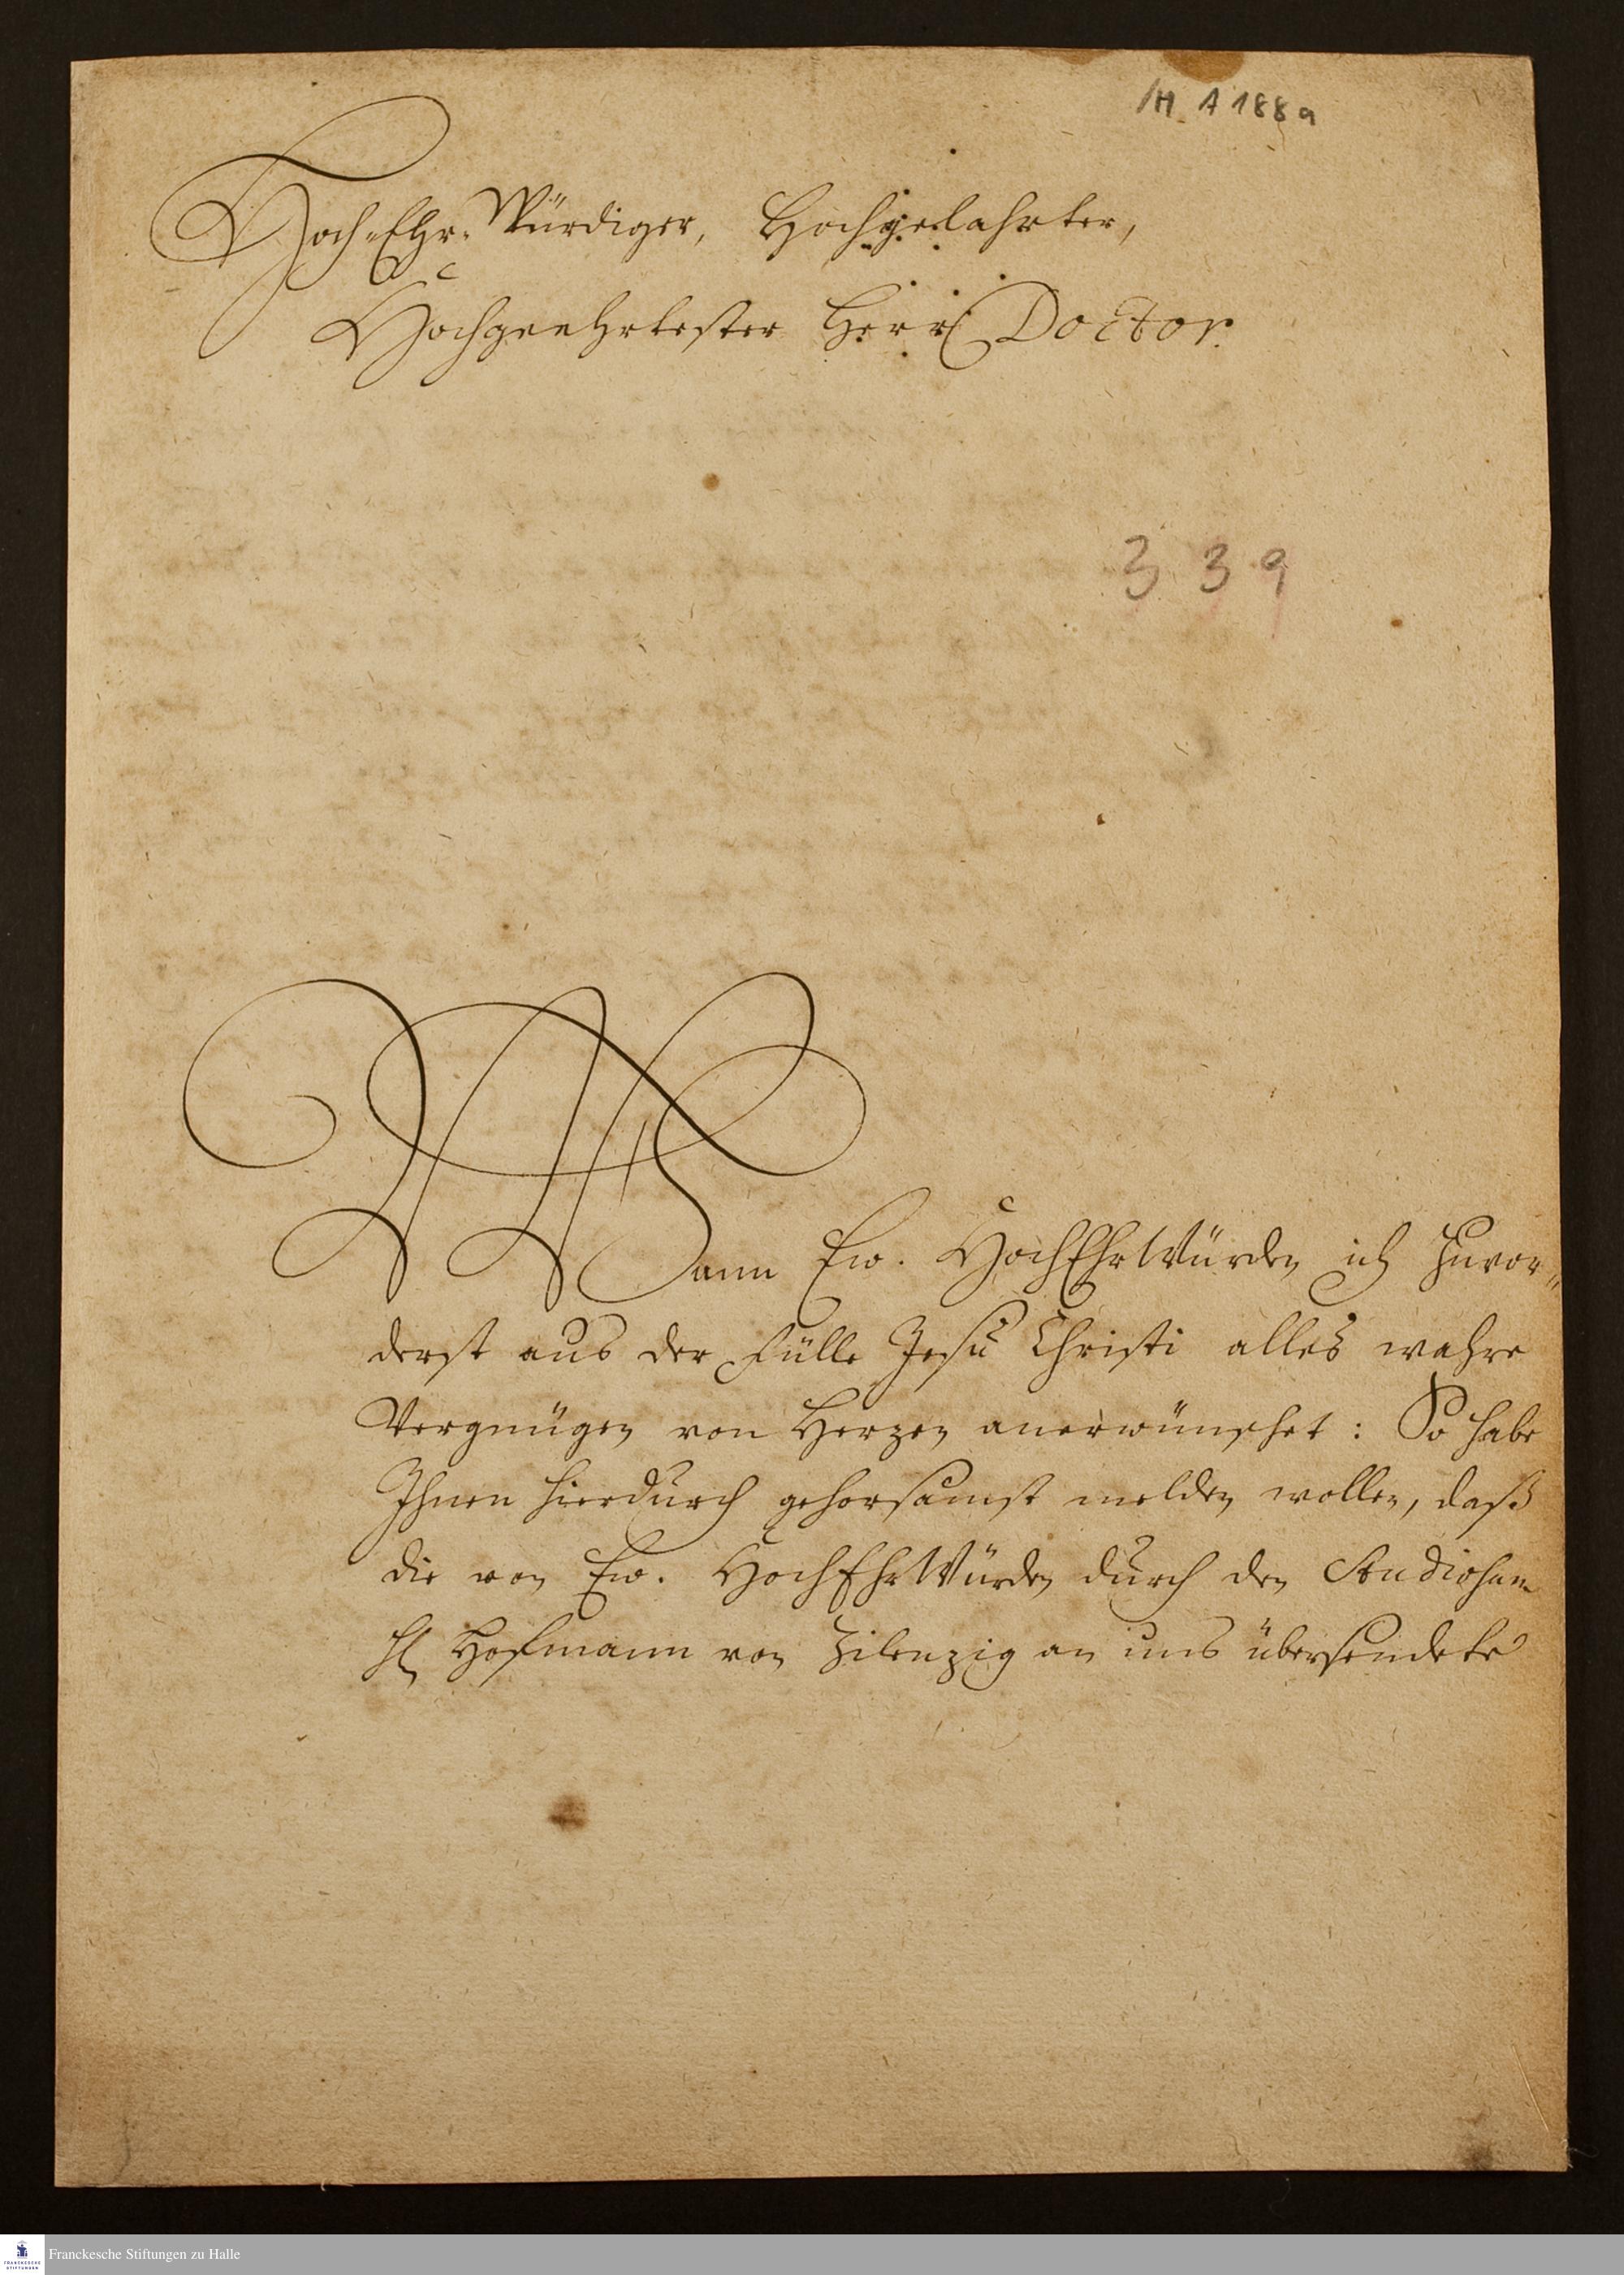 /H A 188 a
Hoch-Ehr-Würdiger, Hochgelahrter,
Hochgeehrtester Herr Doctor.
339
Wann Ew. HochEhrWürden ich zuvor-
derst aus der Fülle Jesu Christi alles wahre
Vergnügen von Herzen anerwünschet: So habe
Ihnen hierdurch gehorsamst melden wollen, daß
die von Ew. HochEhrWürden durch den Studiosum
H. Hofmann von Zilenzig an uns übersendete
Franckesche Stiftungen zu Halle
FRANCKESCHE
STIFTUNGEN